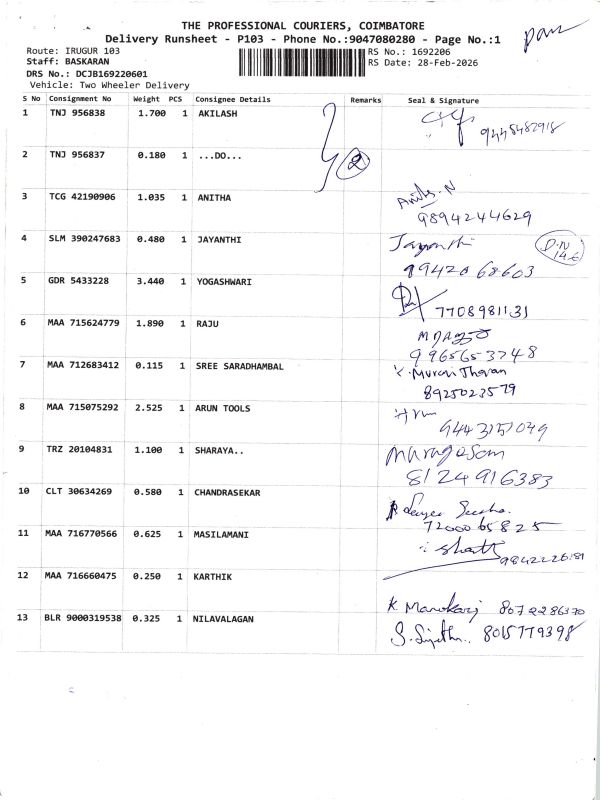 THE PROFESSIONAL COURIERS, COIMBATORE
Delivery Runsheet - P103 - Phone No.:9047080280 - Page No.:1
Route: IRUGUR 103
RS No.: 1692206
Staff: BASKARAN
RS Date: 28-Feb-2026
DRS No.: DCJB169220601
Vehicle: Two Wheeler Delivery
S No Consignment No Weight PCS Consignee Details Remarks Seal & Signature
1 TNJ 956838 1.700 1 AKILASH
2 TNJ 956837 0.180 1 ...DO... 2
3 TCG 42190906 1.035 1 ANITHA Anitha. N
9894244629
4 SLM 390247683 0.480 1 JAYANTHI Jayanthi D.N
9942068603
5 GDR 5433228 3.440 1 YOGASHWARI
7708981131
6 MAA 715624779 1.890 1 RAJU
9965653748
7 MAA 712683412 0.115 1 SREE SARADHAMBAL
8925023579
8 MAA 715075292 2.525 1 ARUN TOOLS
9443157049
9 TRZ 20104831 1.100 1 SHARAYA.. Murugasam
8124916383
10 CLT 30634269 0.580 1 CHANDRASEKAR
7200065825
11 MAA 716770566 0.625 1 MASILAMANI
9842226181
12 MAA 716660475 0.250 1 KARTHIK
K Manokarj 8072286370
13 BLR 9000319538 0.325 1 NILAVALAGAN S. Sujitha.. 8015779398